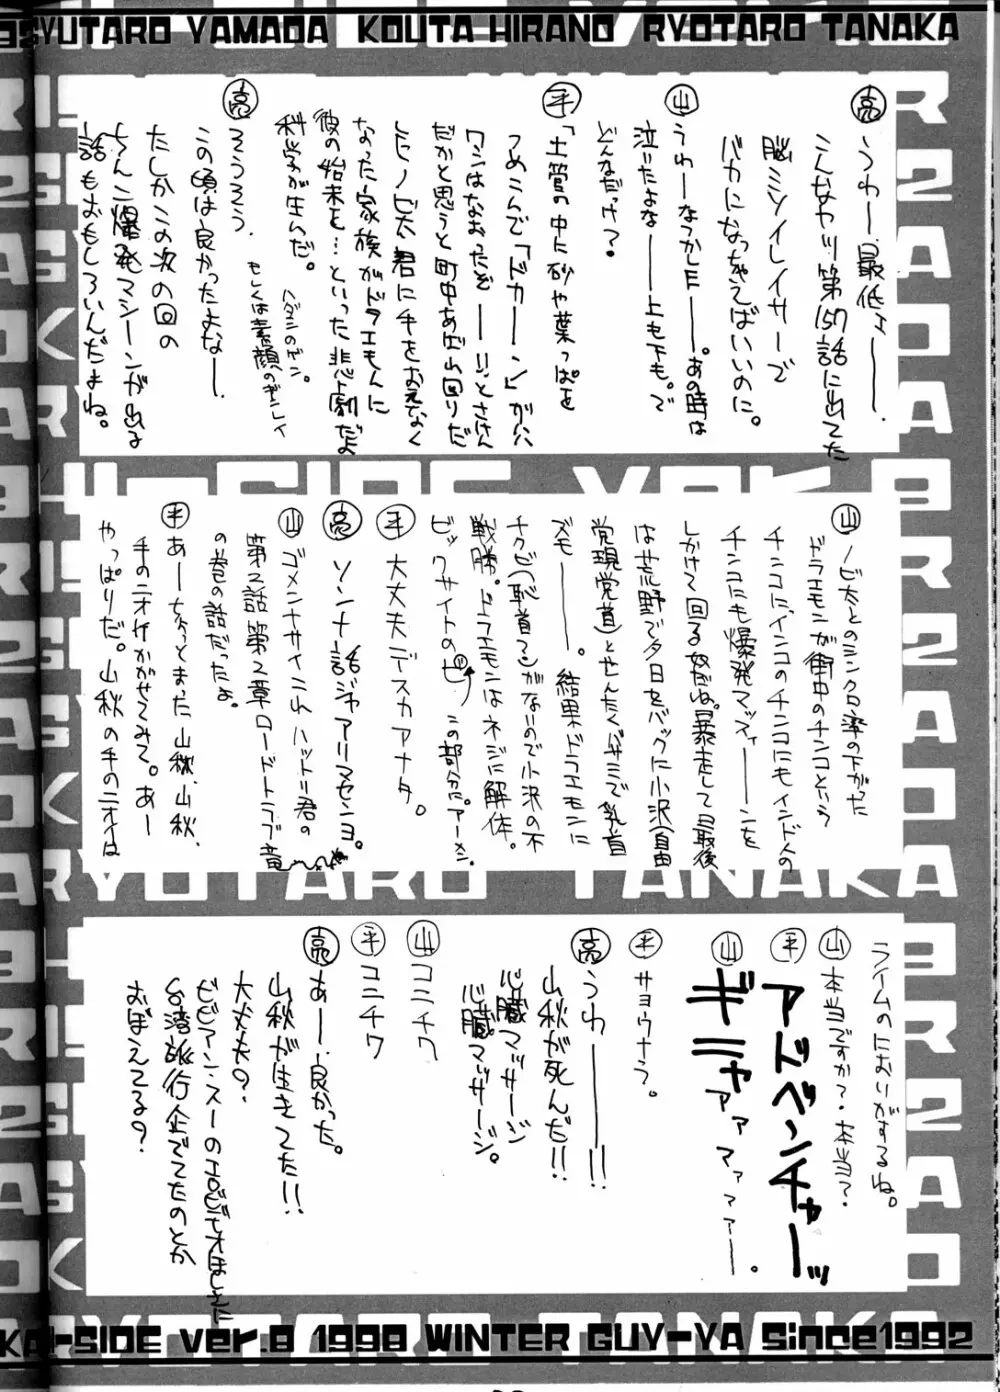 SYUTARO YAMADA KOUTA HIRANO RYOTARO TANAKA
亮 うわー、最低ェー。
こんなヤツ第157話に出てた
脳ミソイレイサーで
バカになっちゃえばいいのに。
山 うわーなつかしE——。あの時は
泣いたよなー——上も下も。で
どんなだっけ？
平 「土管の中に砂や葉っぱを
つめこんで「ドカーーン」が八
ワシはなおったぞ——!!とさけん
だかと思うと町中あばれ回りだ
したノビ太君に手をおえなく
なった家族がドラエもんに
彼の始末を…といった悲劇だよ
科学が生んだ。
もしくは素顔の
亮 そうそう、
この頃は良かったよなー。
たしかこの次の回の
ちんこ爆発マシーンが出る
話もおもしろいんだよね。
山 ノビ太とのシンクロ率の下がった
ドラエモンが街中のチンコという
チンコに、インコのチンコにもインド人の
チンコにも爆発マッスィーーンを
しかけて回る奴だね。暴走して最後
は荒野で夕日をバックに小沢(自由
党現党首)とせんたくバサミで乳首
ズモー——。結果ドラエモンに
チクビ(恥首マン)がないので小沢の不
戦勝。ドラエモンはネジに解体。
ビックサイトのビ この部分に。アーメン。
平 大丈夫デスカアナタ。
亮 ソンナ話ジャアリマセンヨ。
山 ゴメンナサイこれハットリ君の
第2話第2章ロードトラブ竜
の巻の話だったよ。
平 あーちょっとまった山秋、山秋、
手のニオイかがせてみて。あー
やっぱりだ。山秋の手のニオイは
ライムのにおいがするね。
山 本当ですか？・本当？・
平 アドベンチャーッ
山 ギニャァァァマァァァー。
平 サヨウナラ。
亮 うわ————!!
山秋が死んだ!!
心臓マッサージ
心臓マッサージ。
山 コニチワ
平 コニチワ
亮 あー、良かった。
山秋が生きてた!!
大丈夫？
ビビアン・スーのエロビデオほしさに
台湾旅行企てたのとか
おぼえてる？
KAI-SIDE ver.8 1998 WINTER GUY-YA Since1992